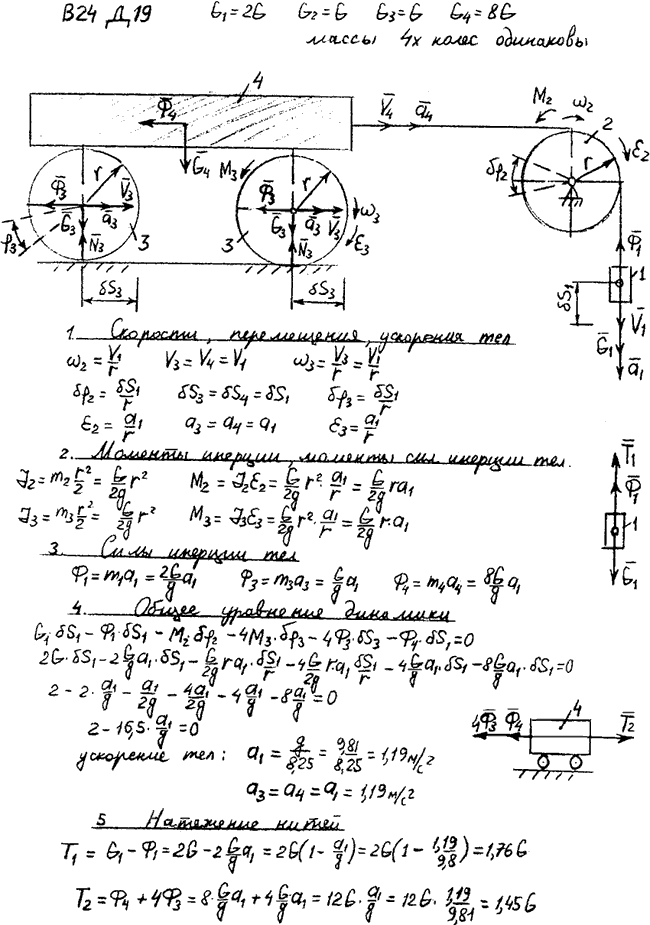 В24 Д19 G₁=2G G₂=G G₃=G G₄=8G
массы 4х колес одинаковы
4
Φ̄₄
V̄₄ ā₄
M₂ ω₂
2
ε₂
δφ₂
r
Ḡ₄
M₃
r
r
Φ̄₃ V̄₃
Φ̄₃
ω₃
Ḡ₃ ā₃
Ḡ₃ ā₃ V̄₃
φ₃
N̄₃
3
3
N̄₃
ε₃
δS₃
δS₃
Φ̄₁
1
δS₁
V̄₁
Ḡ₁
ā₁
1. Скорости, перемещения, ускорения тел
ω₂ = V₁/r V₃ = V₄ = V₁ ω₃ = V₃/r = V₁/r
δφ₂ = δS₁/r δS₃ = δS₄ = δS₁ δφ₃ = δS₁/r
ε₂ = a₁/r a₃ = a₄ = a₁ ε₃ = a₁/r
2. Моменты инерции, моменты сил инерции тел.
J₂ = m₂ r²/2 = G/2g r² M₂ = J₂ε₂ = G/2g r² · a₁/r = G/2g r a₁
J₃ = m₃ r²/2 = G/2g r² M₃ = J₃ε₃ = G/2g r² · a₁/r = G/2g r·a₁
T̄₁
Φ̄₁
1
Ḡ₁
3. Силы инерции тел
Φ₁ = m₁a₁ = 2G/g a₁ Φ₃ = m₃a₃ = G/g a₁ Φ₄ = m₄a₄ = 8G/g a₁
4. Общее уравнение динамики
G₁·δS₁ − Φ₁·δS₁ − M₂·δφ₂ − 4M₃·δφ₃ − 4Φ₃·δS₃ − Φ₄·δS₁ = 0
2G·δS₁ − 2G/g a₁·δS₁ − G/2g r a₁·δS₁/r − 4G/2g r·a₁ δS₁/r − 4G/g a₁·δS₁ − 8G/g a₁·δS₁ = 0
2 − 2·a₁/g − a₁/2g − 4a₁/2g − 4a₁/g − 8a₁/g = 0
2 − 16,5·a₁/g = 0
ускорение тел: a₁ = g/8,25 = 9,81/8,25 = 1,19 м/с²
a₃ = a₄ = a₁ = 1,19 м/с²
4Φ̄₃ Φ̄₄ 4 T̄₂
5 Натяжение нитей
T₁ = G₁ − Φ₁ = 2G − 2G/g a₁ = 2G(1 − a₁/g) = 2G(1 − 1,19/9,8) = 1,76G
T₂ = Φ₄ + 4Φ₃ = 8·G/g a₁ + 4G/g a₁ = 12G·a₁/g = 12G·1,19/9,81 = 1,45G